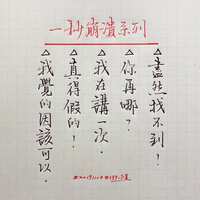 一秒崩潰系列
△盡然找不到！
△你再哪？
△我在講一次．
△真得假的？
△我覺的因該可以．